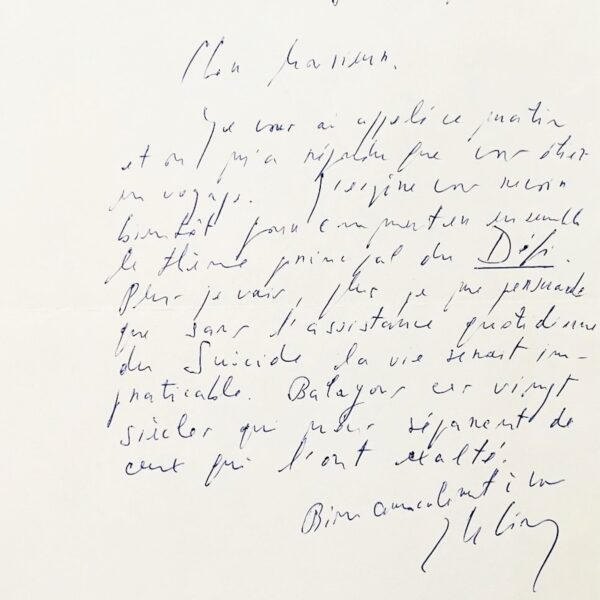 Cher Monsieur,
Je vous ai appelé ce matin
et on m'a répondu que vous étiez
en voyage. J'espère vous revoir
bientôt pour commenter ensemble
le thème principal du Défi.
Plus je vais, plus je me persuade
que sans l'assistance quotidienne
du Suicide la vie serait im-
praticable. Balayons ces vingt
siècles qui nous séparent de
ceux qui l'ont exalté.
Bien amicalement à vous